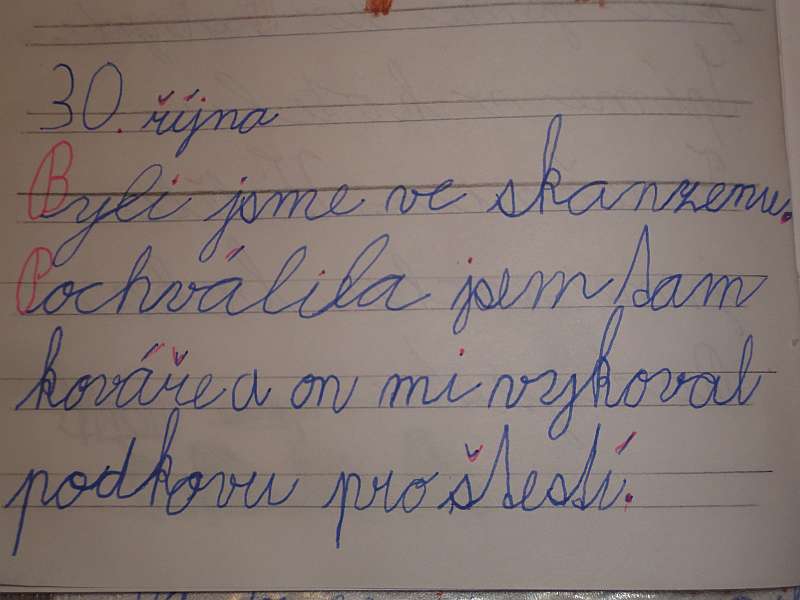 30. října
Byli jsme ve skanzenu.
Pochválila jsem tam
kováře a on mi vykoval
podkovu pro štestí.